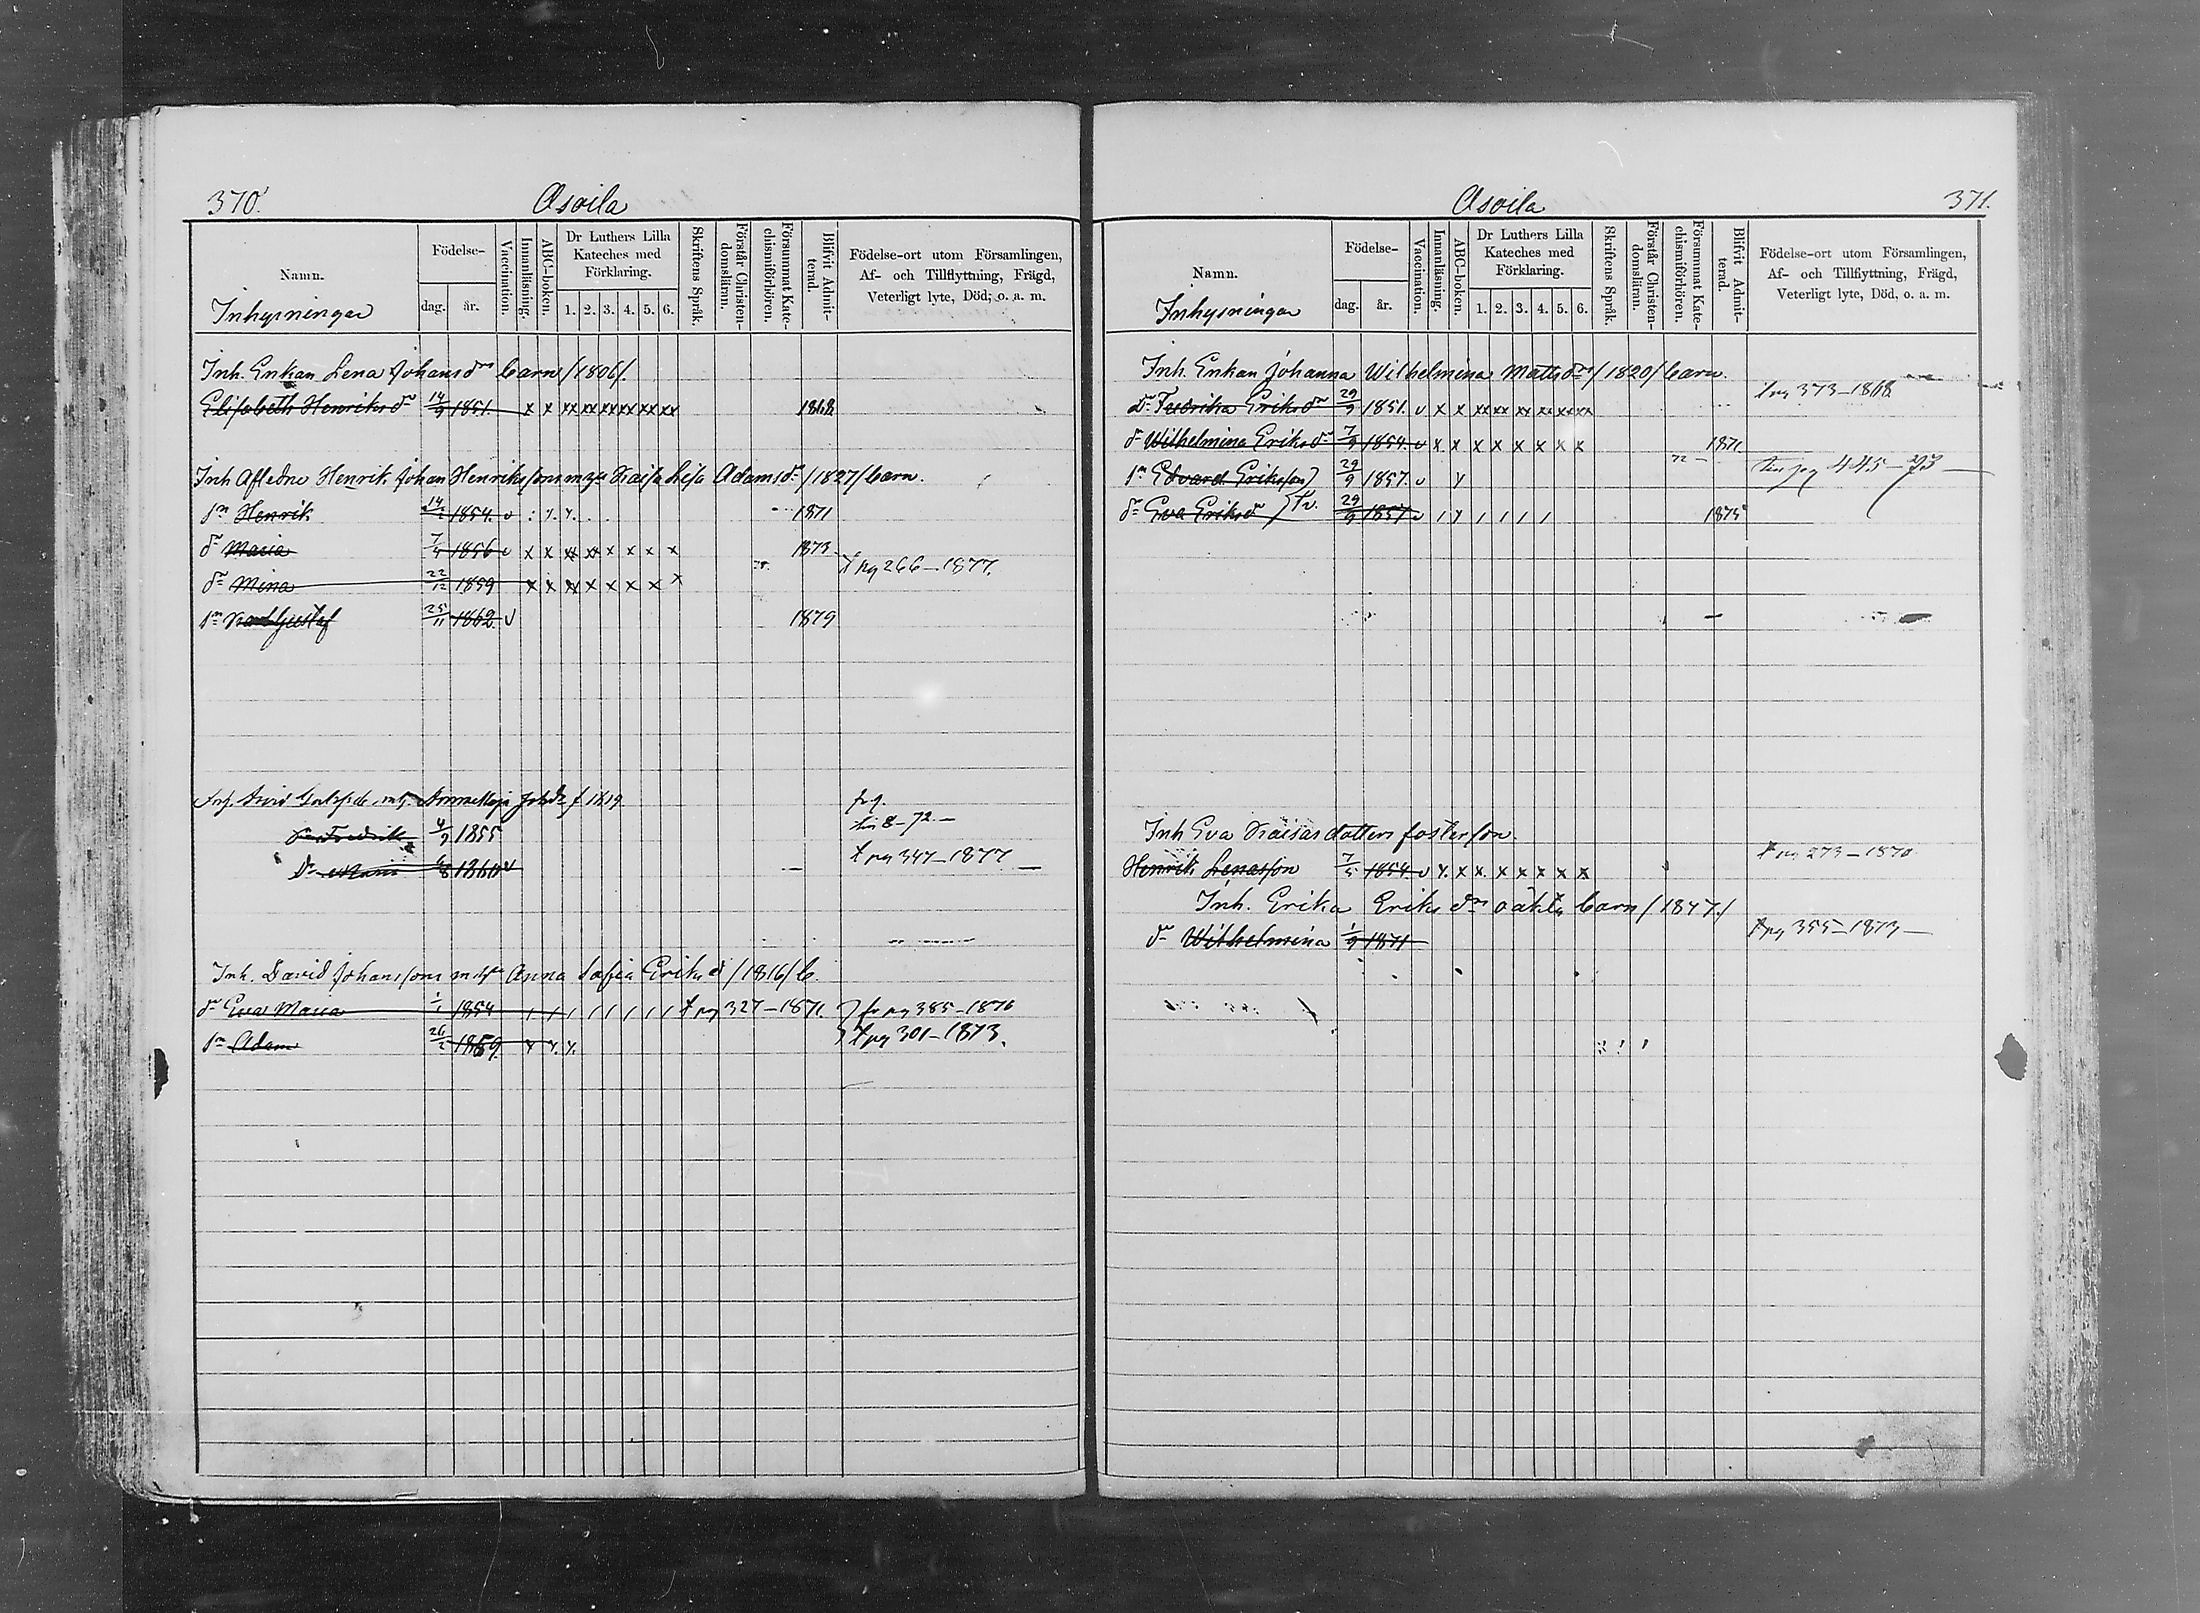 370.
Asoila
Namn.
Inhysningar
Födelse-
dag.
år.
Vaccination.
Innanläsning.
ABC-boken.
Dr Luthers Lilla
Kateches med
Förklaring.
1. 2. 3. 4. 5. 6.
Skriftens Språk.
Förstår Christen-
domsläran.
Försummat Kate-
chismiförhören.
Blifvit Admit-
terad.
Födelse-ort utom Församlingen,
Af- och Tillflyttning, Frägd,
Veterligt lyte, Död, o. a. m.
Inh. Enkan Lena Johansdr barn /1806/.
Elisabeth Henriksdr 14/9 1851. x x xx xx xx xx xx xx 1868
Inh Afledne Henrik Johan Henrikssons Kaisa Lisa Adamsdr /1827/ barn.
sn Henrik 14/2 1854. v 1871
dr Maria 7/5 1856 v x x xx xx x x x x 1873
t pg 266–1877.
dr Mina 22/12 1859 x x x x x x x x
sn Karl Gustaf 25/11 1862. v 1879
1819
Fredrik 4/9 1855
8–72.–
dr Maria 6/8 1860 v
t pg 347–1877
Inh. David Johanssons Anna Sofia Eriksd /1816/ b.
dr Eva Maria 1/1 1854 t pg 327–1871. fr pg 385–1870
sn Adam 26/2 1859 x x. x. t pg 301–1873.
Asoila
371.
Namn.
Inhysningar
Födelse-
dag.
år.
Vaccination.
Innanläsning.
ABC-boken.
Dr Luthers Lilla
Kateches med
Förklaring.
1. 2. 3. 4. 5. 6.
Skriftens Språk.
Förstår Christen-
domsläran.
Försummat Kate-
chismiförhören.
Blifvit Admit-
terad.
Födelse-ort utom Församlingen,
Af- och Tillflyttning, Frägd,
Veterligt lyte, Död, o. a. m.
Inh. Enkan Johanna Wilhelmina Mattsdr /1820/ barn
t pg 373–1868
dr Fredrika Eriksdr 29/9 1851. v x x xx xx xx xx xx xx
dr Wilhelmina Eriksdr 7/9 1854. v x x x x x x x x 1871
sn Edvard Eriksson 29/9 1857. v y 445–73
dr Eva Eriksdr } Tv. 29/9 1857 v 1875
Inh Eva Kaisasdotters fosterson.
t pg 273–1870
Henrik Lenasson 7/5 1854. v x. x x. x x x x x
Inh. Erika Eriksdrs oäkta barn /1847./
t pg 355–1873–
dr Wilhelmina 1/9 1871